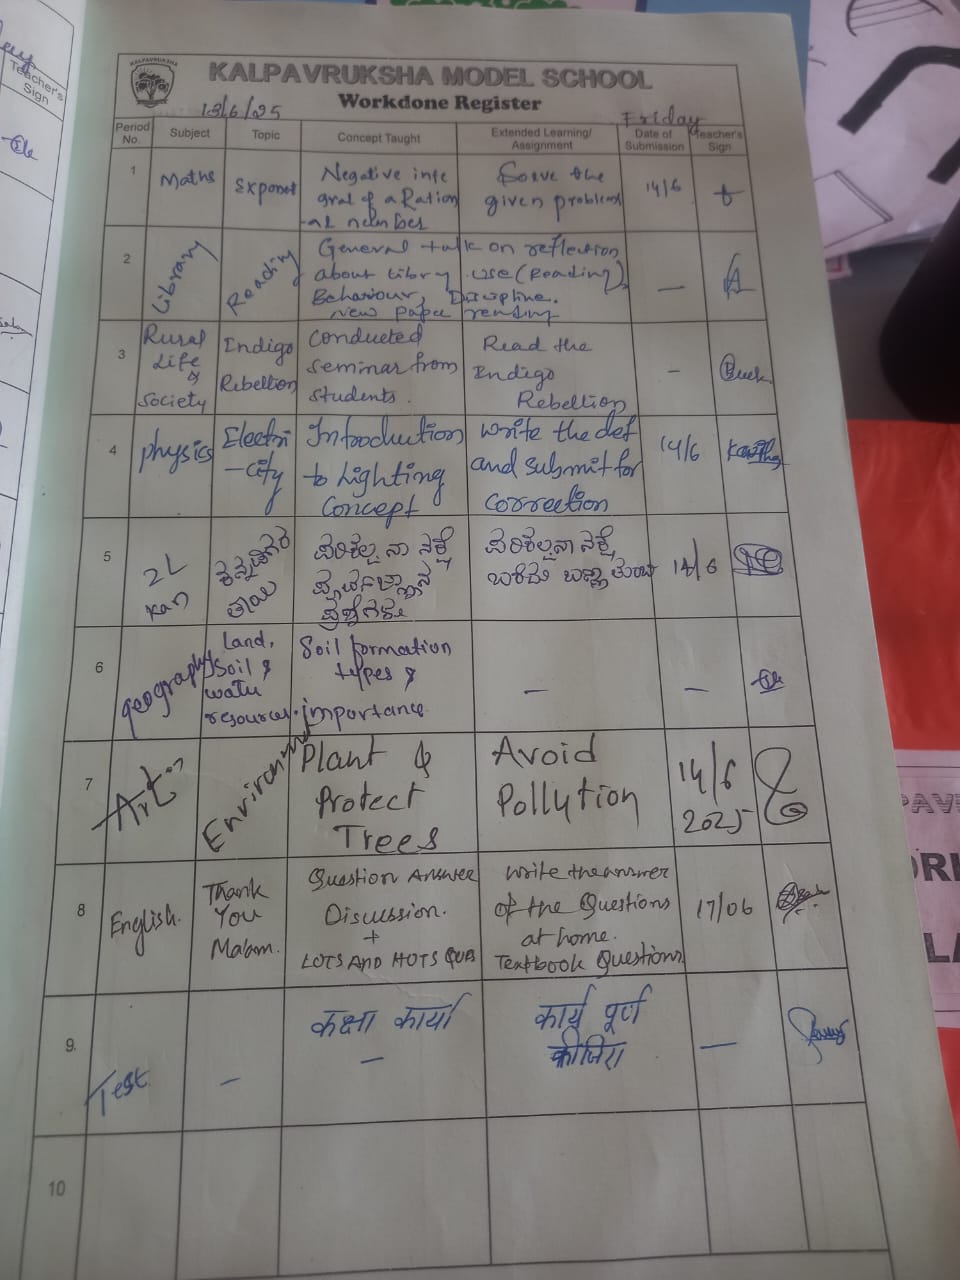 KALPAVRUKSHA
KALPAVRUKSHA MODEL SCHOOL
Workdone Register
13/6/25
Friday
Period No.
Subject
Topic
Concept Taught
Extended Learning/ Assignment
Date of Submission
Teacher's Sign
1
Maths
Exponet
Negative inte
gral of a Ration
-al number
Solve the
given problems
14/6
2
Library
Reading
General talk on reflection
about Libry use (Reading)
Behaviour, Discipline.
New paper reading
—
3
Rural
Life
&
Society
Indigo
Rebellion
Conducted
seminar from
students.
Read the
Indigo
Rebellion
-
4
physics
Electri
-city
Introduction
to Lighting
Concept
write the def
and submit for
correction
14/6
5
2L
Kan
14/6
6
geography
Land,
soil &
water
resources.
Soil formation
types &
importance
—
—
7
Art
Environment
Plant &
Protect
Trees
Avoid
Pollution
14/6
2025
8
English.
Thank
You
Ma'am.
Question Answer
Discussion.
+
LOTS AND HOTS QUES
Write the answer
of the Questions
at home.
Textbook Questions
17/06
9.
Test
—
कक्षा कार्या
—
कार्य पूर्ण
कीजिए
—
10
Teacher's
Sign